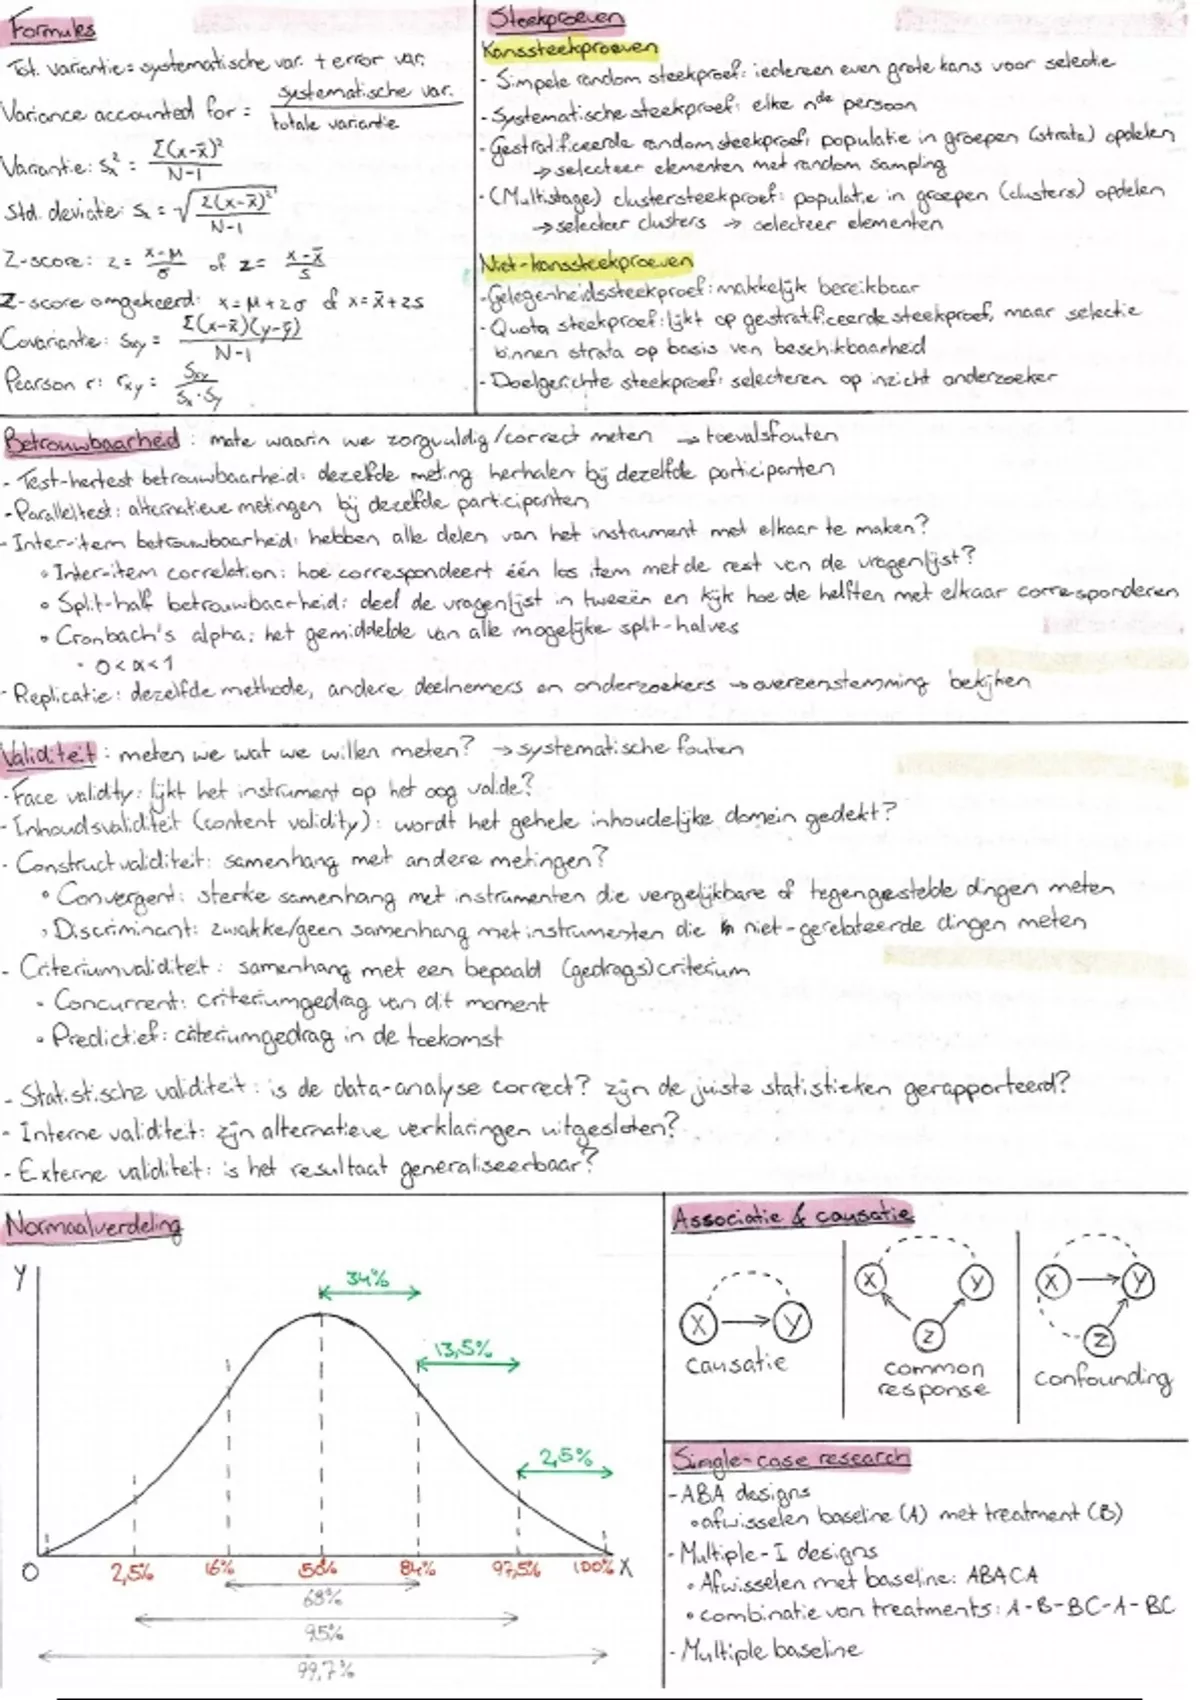 Formules
Tot. variantie = systematische var. + error var.
Variance accounted for = systematische var. / totale variantie
Variantie: Sx² = Σ(x-x̄)² / N-1
Std. deviatie: Sx = √ Σ(x-x̄)² / N-1
Z-score: z = x-μ / σ of z = x-x̄ / s
Z-score omgekeerd: x = μ + zσ of x = x̄ + zs
Covariantie: Sxy = Σ(x-x̄)(y-ȳ) / N-1
Pearson r: rxy = Sxy / Sx·Sy
Steekproeven
Kanssteekproeven
- Simpele random steekproef: iedereen even grote kans voor selectie
- Systematische steekproef: elke nde persoon
- Gestratificeerde random steekproef: populatie in groepen (strata) opdelen
→ selecteer elementen met random sampling
- (Multistage) clustersteekproef: populatie in groepen (clusters) opdelen
→ selecteer clusters → selecteer elementen
Niet-kanssteekproeven
- Gelegenheidssteekproef: makkelijk bereikbaar
- Quota steekproef: lijkt op gestratificeerde steekproef, maar selectie
binnen strata op basis van beschikbaarheid
- Doelgerichte steekproef: selecteren op inzicht onderzoeker
Betrouwbaarheid: mate waarin we zorgvuldig/correct meten → toevalsfouten
- Test-hertest betrouwbaarheid: dezelfde meting herhalen bij dezelfde participanten
- Paralleltest: alternatieve metingen bij dezelfde participanten
- Inter-item betrouwbaarheid: hebben alle delen van het instrument met elkaar te maken?
• Inter-item correlation: hoe correspondeert één los item met de rest van de vragenlijst?
• Split-half betrouwbaarheid: deel de vragenlijst in tweeën en kijk hoe de helften met elkaar corresponderen
• Cronbach's alpha: het gemiddelde van alle mogelijke split-halves
• 0 < α < 1
- Replicatie: dezelfde methode, andere deelnemers en onderzoekers → overeenstemming bekijken
Validiteit: meten we wat we willen meten? → systematische fouten
- Face validity: lijkt het instrument op het oog valide?
- Inhoudsvaliditeit (content validity): wordt het gehele inhoudelijke domein gedekt?
- Constructvaliditeit: samenhang met andere metingen?
• Convergent: sterke samenhang met instrumenten die vergelijkbare of tegengestelde dingen meten
• Discriminant: zwakke/geen samenhang met instrumenten die niet-gerelateerde dingen meten
- Criteriumvaliditeit: samenhang met een bepaald (gedrags)criterium
• Concurrent: criteriumgedrag van dit moment
• Predictief: criteriumgedrag in de toekomst
- Statistische validiteit: is de data-analyse correct? zijn de juiste statistieken gerapporteerd?
- Interne validiteit: zijn alternatieve verklaringen uitgesloten?
- Externe validiteit: is het resultaat generaliseerbaar?
Normaalverdeling
Y
34%
13,5%
2,5%
0 2,5% 16% 50% 84% 97,5% 100% X
68%
95%
99,7%
Associatie & causatie
X Y
causatie
X Y
Z
common
response
X Y
Z
confounding
Single-case research
- ABA designs
• afwisselen baseline (A) met treatment (B)
- Multiple-I designs
• Afwisselen met baseline: ABACA
• combinatie van treatments: A-B-BC-A-BC
- Multiple baseline